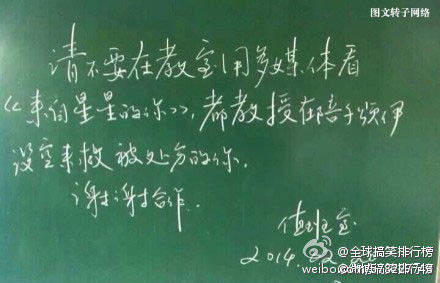 图文转子网络
请不要在教室用多媒体看
《来自星星的你》,都教授在陪千颂伊
没空来救被处分的你.
谢谢合作.
值班室
@全球搞笑排行榜